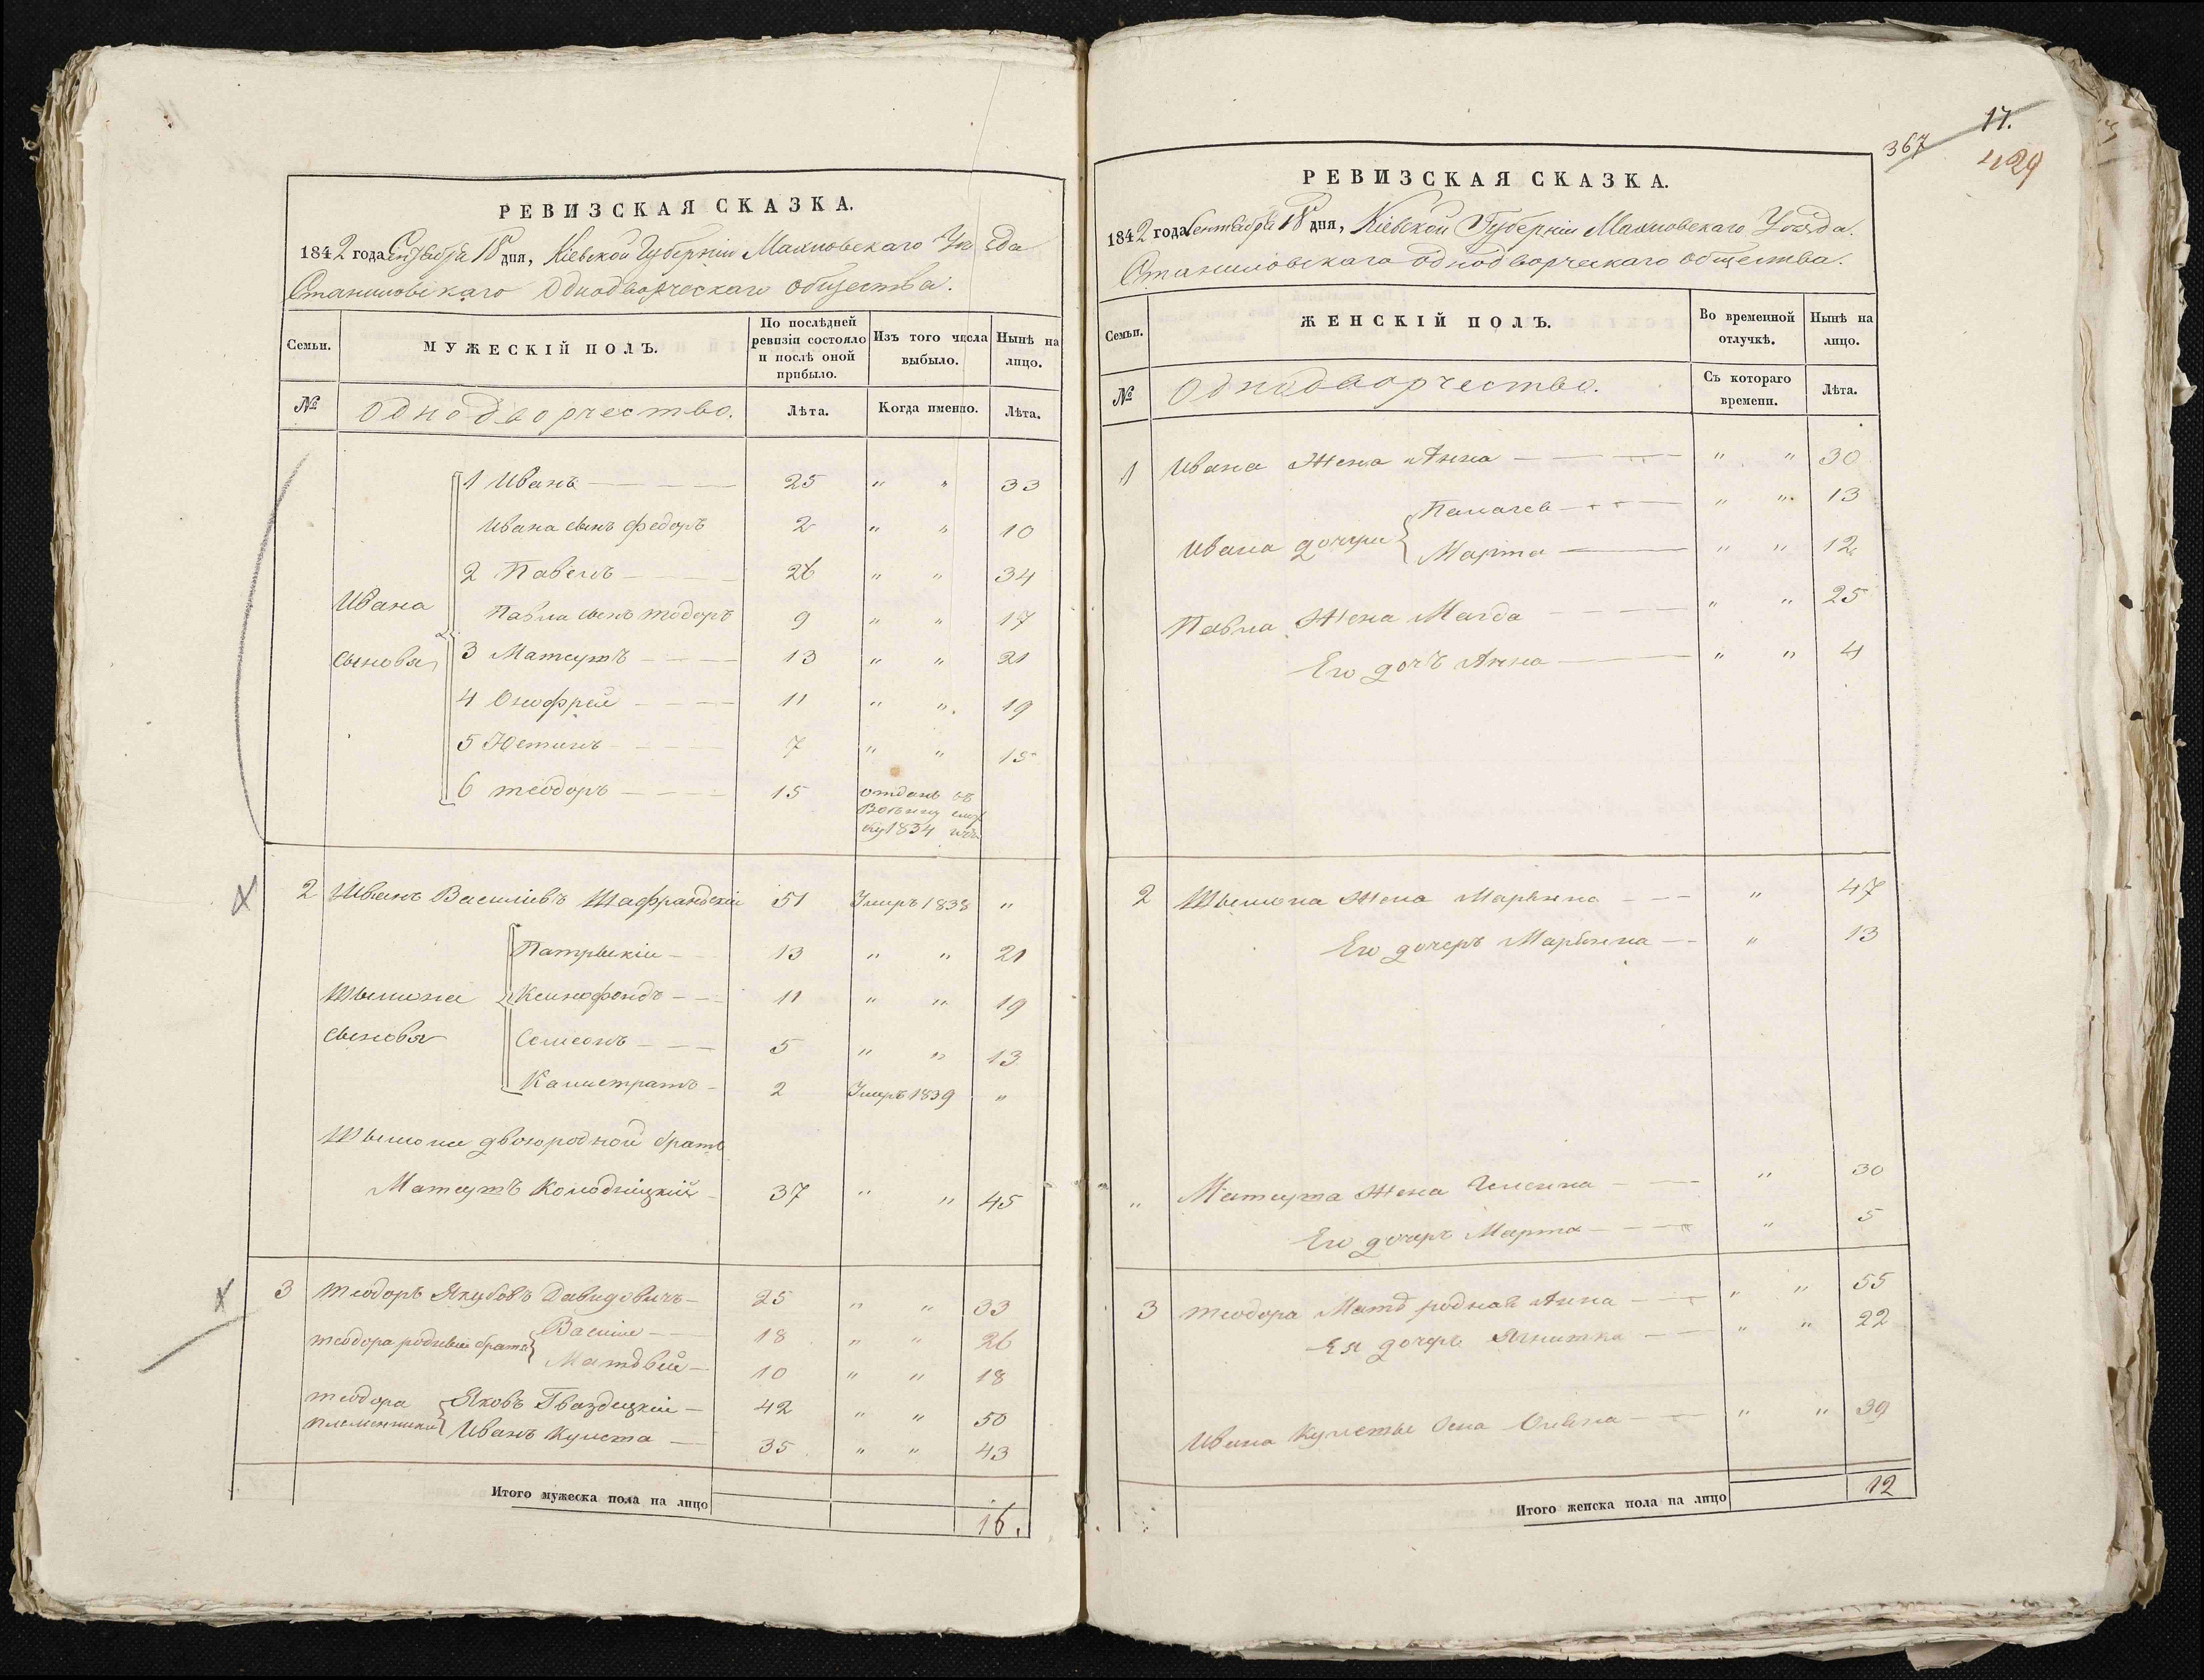 РЕВИЗСКАЯ СКАЗКА.
1842 года Сентября 18 дня, Кіевской Губерніи Махновскаго Уезда
Станиловскаго Однодворческаго общества.
Семьи.
МУЖЕСКІЙ ПОЛЪ.
По послѣдней ревизіи состояло и послѣ оной прибыло.
Изъ того числа выбыло.
Нынѣ на лицо.
№
Однодворчество.
Лѣта.
Когда именно.
Лѣта.
1 Иванъ — — — 25 " " 33
Ивана сынъ федоръ 2 " " 10
2 Павелъ — — 26 " " 34
Ивана
Павла сынъ тодоръ 9 " " 17
сыновя
3 Матеушъ — — 13 " " 21
4 Онофрей — — — 11 " " 19
5 Юстинъ — — 7 " " 15
6 теодоръ — — — 15 отданъ въ
Военну служ
бу 1834 года
2 Иванъ Василіевъ Шафранскій 51 Умръ 1838 "
Патрыкій — 13 " " 21
Шымона
Ксинофондъ — — 11 " " 19
сыновя
Семеонъ — — — 5 " " 13
Калистратъ — 2 Умръ 1839 "
Шымона двоюродной братъ
Матеушъ Колодницкій — 37 " " 45
3 теодоръ Якубовъ Давидовичъ — 25 " " 33
теодора родныи братя
Василе — — 18 " " 26
Матвѣй — 10 " " 18
теодора
племенники
Яковъ Гваздецкій — 42 " " 50
Иванъ Кулета — 35 " " 43
Итого мужеска пола на лицо
16.
367
17.
429
РЕВИЗСКАЯ СКАЗКА.
1842 года Сентября 18 дня, Кіевской Губерніи Махновскаго Уезда.
Станиловскаго однодворческаго общества.
Семьи.
ЖЕНСКІЙ ПОЛЪ.
Во временной отлучкѣ.
Нынѣ на лицо.
№
Однодворчество.
Съ котораго времени.
Лѣта.
1 Ивана Жена Анна — — — " " 30
" " 13
Ивана дочери
Марта — " " 12
Павла Жена Магда — — — " " 25
Его дочъ Анна — " " 4
2 Шымона Жена Марьяна — — — " 47
Его дочеръ Марьяна — — " 13
" Матеуша Жена — — " 30
Его дочеръ Марта — — — " 5
3 теодора Матъ родная Анна — — " " 55
Ея дочеръ Ягнитка — — " " 22
Ивана Кулеты — — " " 39
Итого женска пола на лицо
12